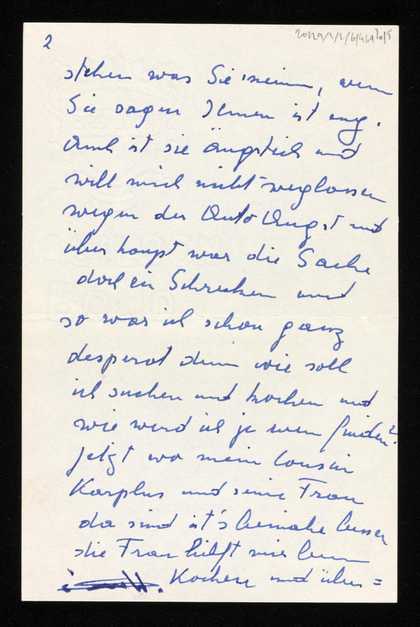 2
stehen was Sie meinen, wenn
Sie sagen Ihnen ist eng.
Auch ist sie ängstlich und
will mich nicht weglassen
wegen der Auto Angst und
überhaupt war die Sache
doch ein Schrecken und
so war ich schon ganz
desperat denn wie soll
ich suchen und kochen und
wie werd ich je wen finden?
Jetzt wo mein Cousin
Karplus und seine Frau
da sind ist's beinahe besser
die Frau hilft mir beim
Kochen und über=